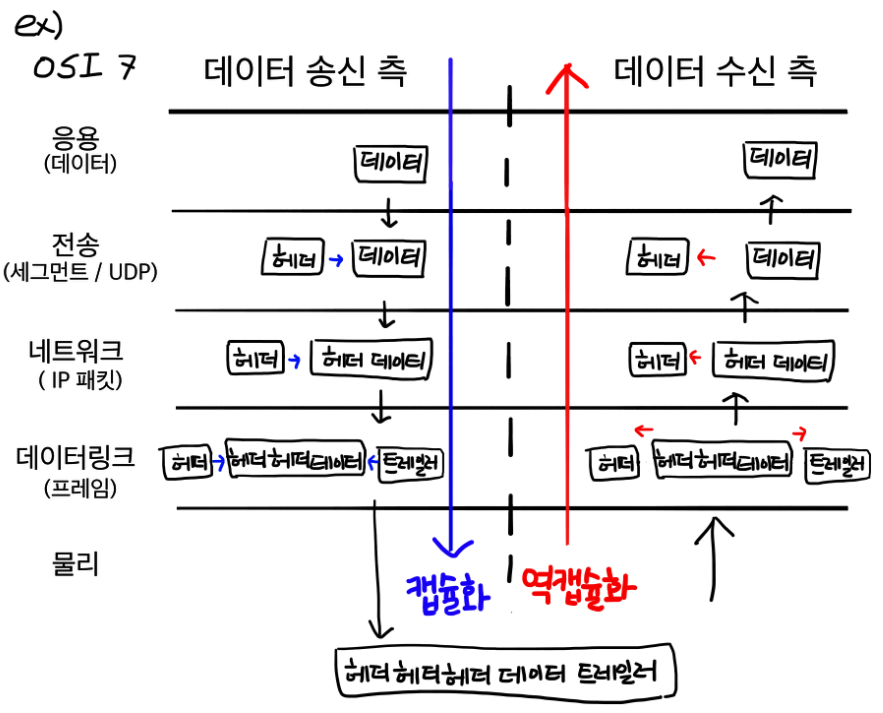 ex)
OSI 7 데이터 송신 측 데이터 수신 측
응용
(데이터) 데이터 데이터
전송
(세그먼트 / UDP) 헤더 데이터 헤더 데이터
네트워크
( IP 패킷) 헤더 헤더 데이터 헤더 헤더 데이터
데이터링크
(프레임) 헤더 헤더헤더데이터 트레일러 헤더 헤더헤더데이터 트레일러
물리
캡슐화 역캡슐화
헤더헤더헤더 데이터 트레일러